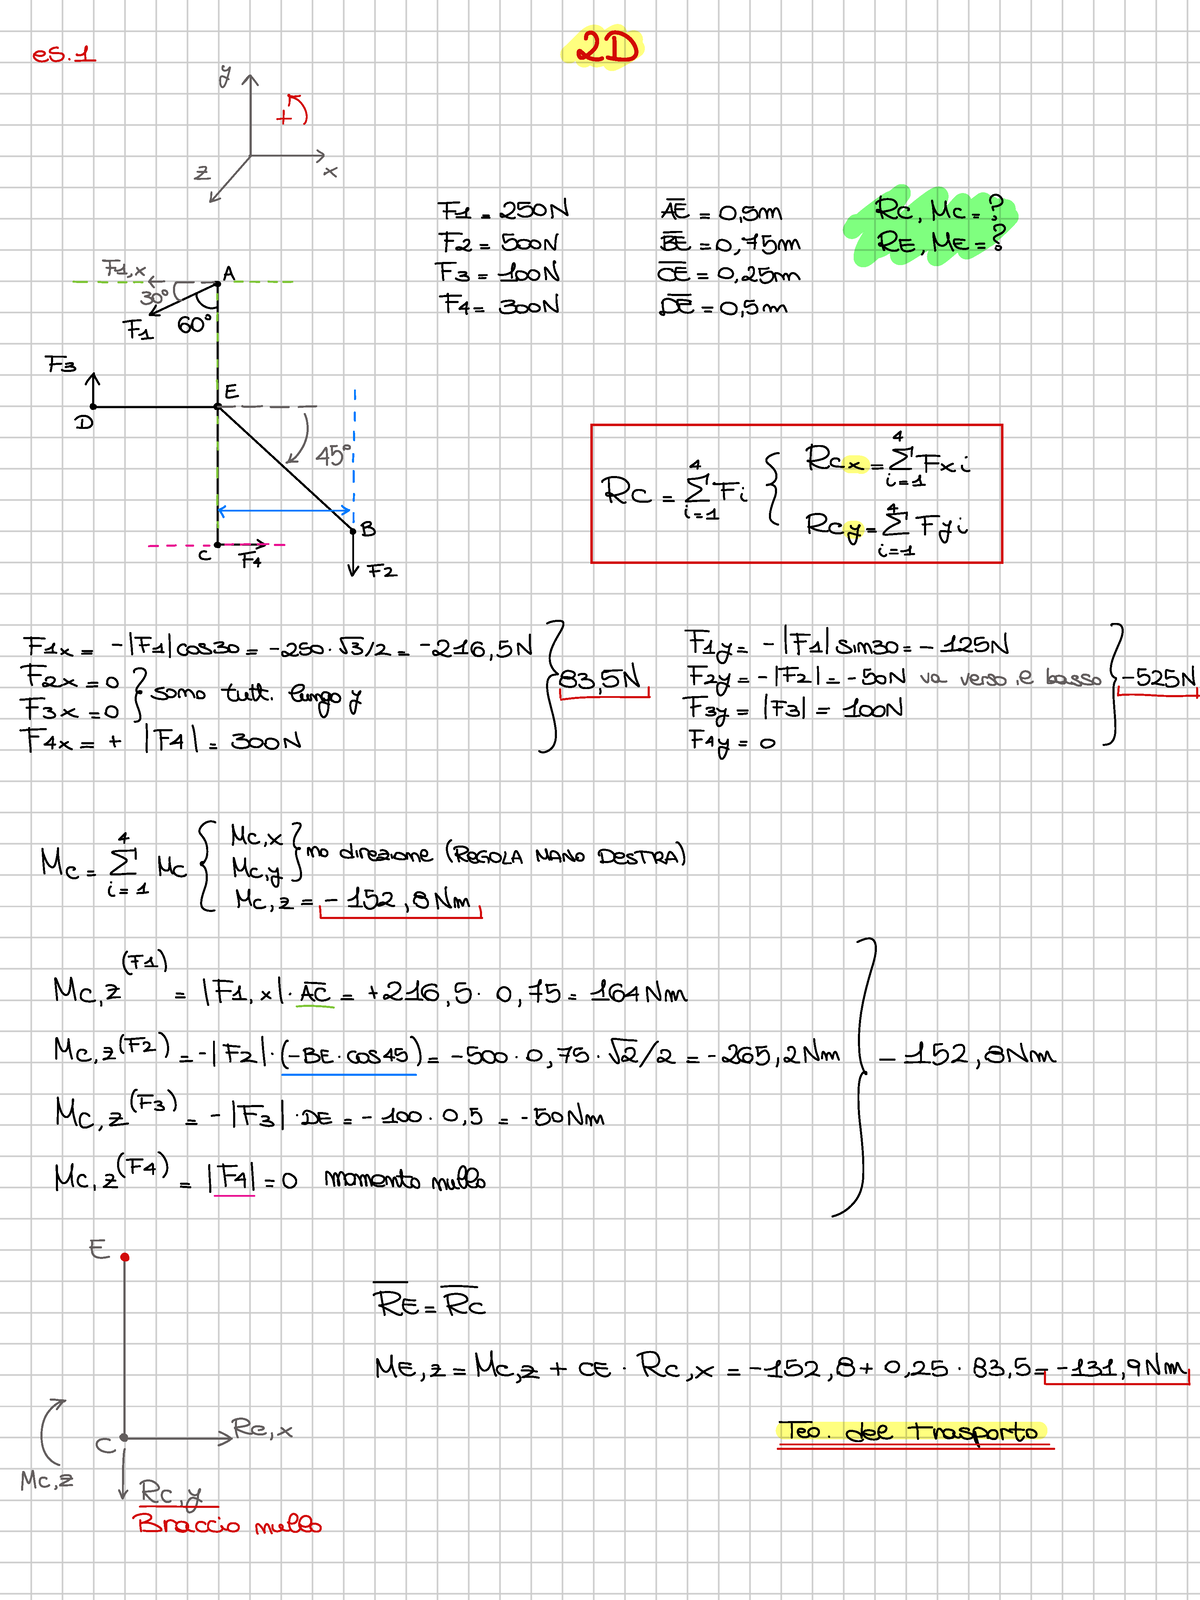 2D
es.1
y
+
z
x
F1 = 250N
F2 = 500N
F3 = 100N
F4 = 300N
AE = 0,5m
BE = 0,75m
CE = 0,25m
DE = 0,5m
Rc, Mc = ?
RE, ME = ?
F1,x
A
30°
F1
60°
F3
E
D
45°
B
C
F4
F2
Rc = Σ⁴ᵢ₌₁ Fi { Rcx = Σ⁴ᵢ₌₁ Fxi
Rcy = Σ⁴ᵢ₌₁ Fyi
F1x = -|F1|cos30 = -250·√3/2 = -216,5N
F2x = 0
F3x = 0 } sono tutt. lungo y
F4x = + |F4| = 300N
} 83,5N
F1y = -|F1|sin30 = -125N
F2y = -|F2| = -50N va verso il basso
F3y = |F3| = 100N
F4y = 0
} -525N
Mc = Σ⁴ᵢ₌₁ Mc { Mc,x
Mc,y } no direzione (REGOLA MANO DESTRA)
Mc,z = -152,8Nm
Mc,z(F1) = |F1,x|·AC = +216,5·0,75 = 164Nm
Mc,z(F2) = -|F2|·(-BE·cos45) = -500·0,75·√2/2 = -265,2Nm
Mc,z(F3) = -|F3|·DE = -100·0,5 = -50Nm
Mc,z(F4) = |F4| = 0 momento nullo
} -152,8Nm
E
RE = Rc
ME,z = Mc,z + CE·Rc,x = -152,8 + 0,25·83,5 = -131,9Nm
Teo. del trasporto
C
Rc,x
Mc,z
Rc,y
Braccio nullo